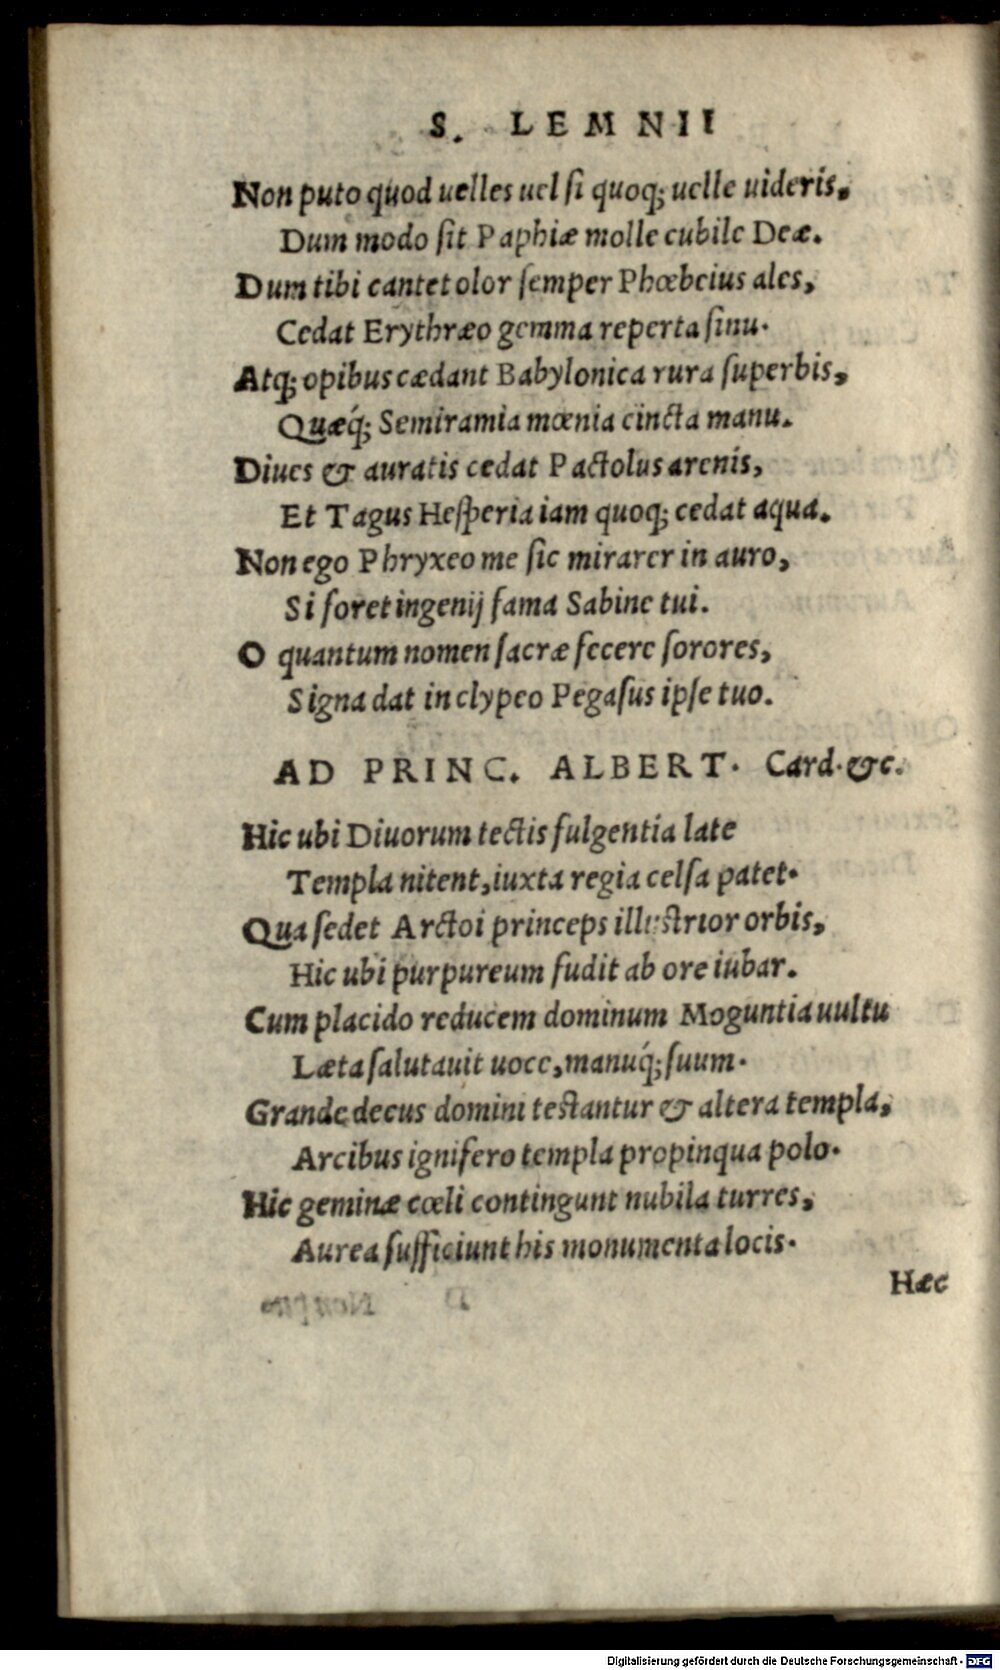 S. LEMNII
Non puto quod uelles uel si quoq; uelle uideris,
Dum modo sit Paphiæ molle cubile Deæ.
Dum tibi cantet olor semper Phœbeius ales,
Cedat Erythræo gemma reperta sinu.
Atq; opibus cædant Babylonica rura superbis,
Quæq́; Semiramia mœnia cincta manu.
Diues & auratis cedat Pactolus arenis,
Et Tagus Hesperia iam quoq; cedat aqua.
Non ego Phryxeo me sic mirarer in auro,
Si foret ingenij fama Sabine tui.
O quantum nomen sacræ fecere sorores,
Signa dat in clypeo Pegasus ipse tuo.
AD PRINC. ALBERT. Card. &c.
Hic ubi Diuorum tectis fulgentia late
Templa nitent, iuxta regia celsa patet.
Qua sedet Arctoi princeps illustrior orbis,
Hic ubi purpureum fudit ab ore iubar.
Cum placido reducem dominum Moguntia uultu
Læta salutauit uoce, manuq́; suum.
Grande decus domini testantur & altera templa,
Arcibus ignifero templa propinqua polo.
Hic geminæ cœli contingunt nubila turres,
Aurea sufficiunt his monumenta locis.
Hæc
Digitalisierung gefördert durch die Deutsche Forschungsgemeinschaft - DFG